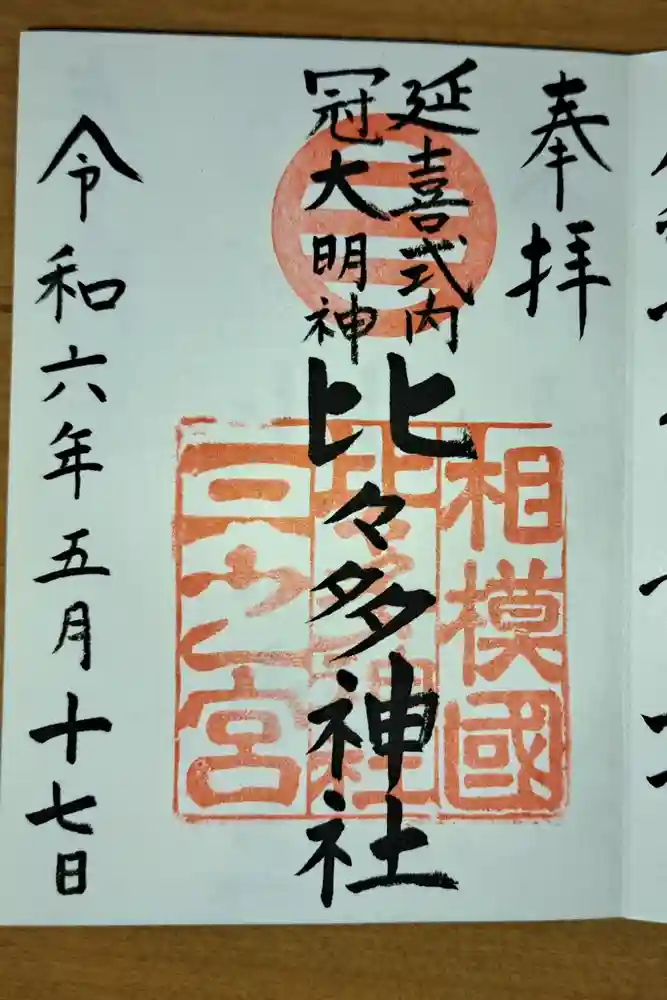 奉拝
延喜式内
冠大明神
比々多神社
相模國
三之宮
令和六年五月十七日